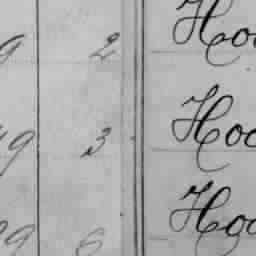 9 2 Hoo
49 3 Hoo
29 6 Hoo